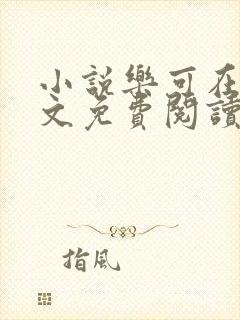 小説樂可在
文免費閱讀
指風